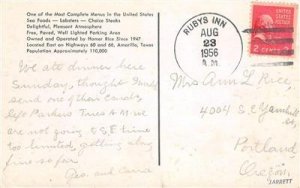 One of the Most Complete Menus in the United States
Sea Foods — Lobsters — Choice Steaks
Delightful, Pleasant Atmosphere
Free, Paved, Well Lighted Parking Area
Owned and Operated by Homer Rice Since 1947
Located East on Highways 60 and 66, Amarillo, Texas
Population Approximately 110,000
RUBYS INN
AUG
23
1956
A.M.
2 CENTS 2
We ate dinner here
Sunday, thought I would
send one of their cards,
left Parkers Tues A.M. we
are not going S.E. time
too limited, getting along
fine so far
Geo. and Carrie
Mrs Ann L. Rice,
4004 S E Yamhill
st
Portland
Oregon.
JARRETT